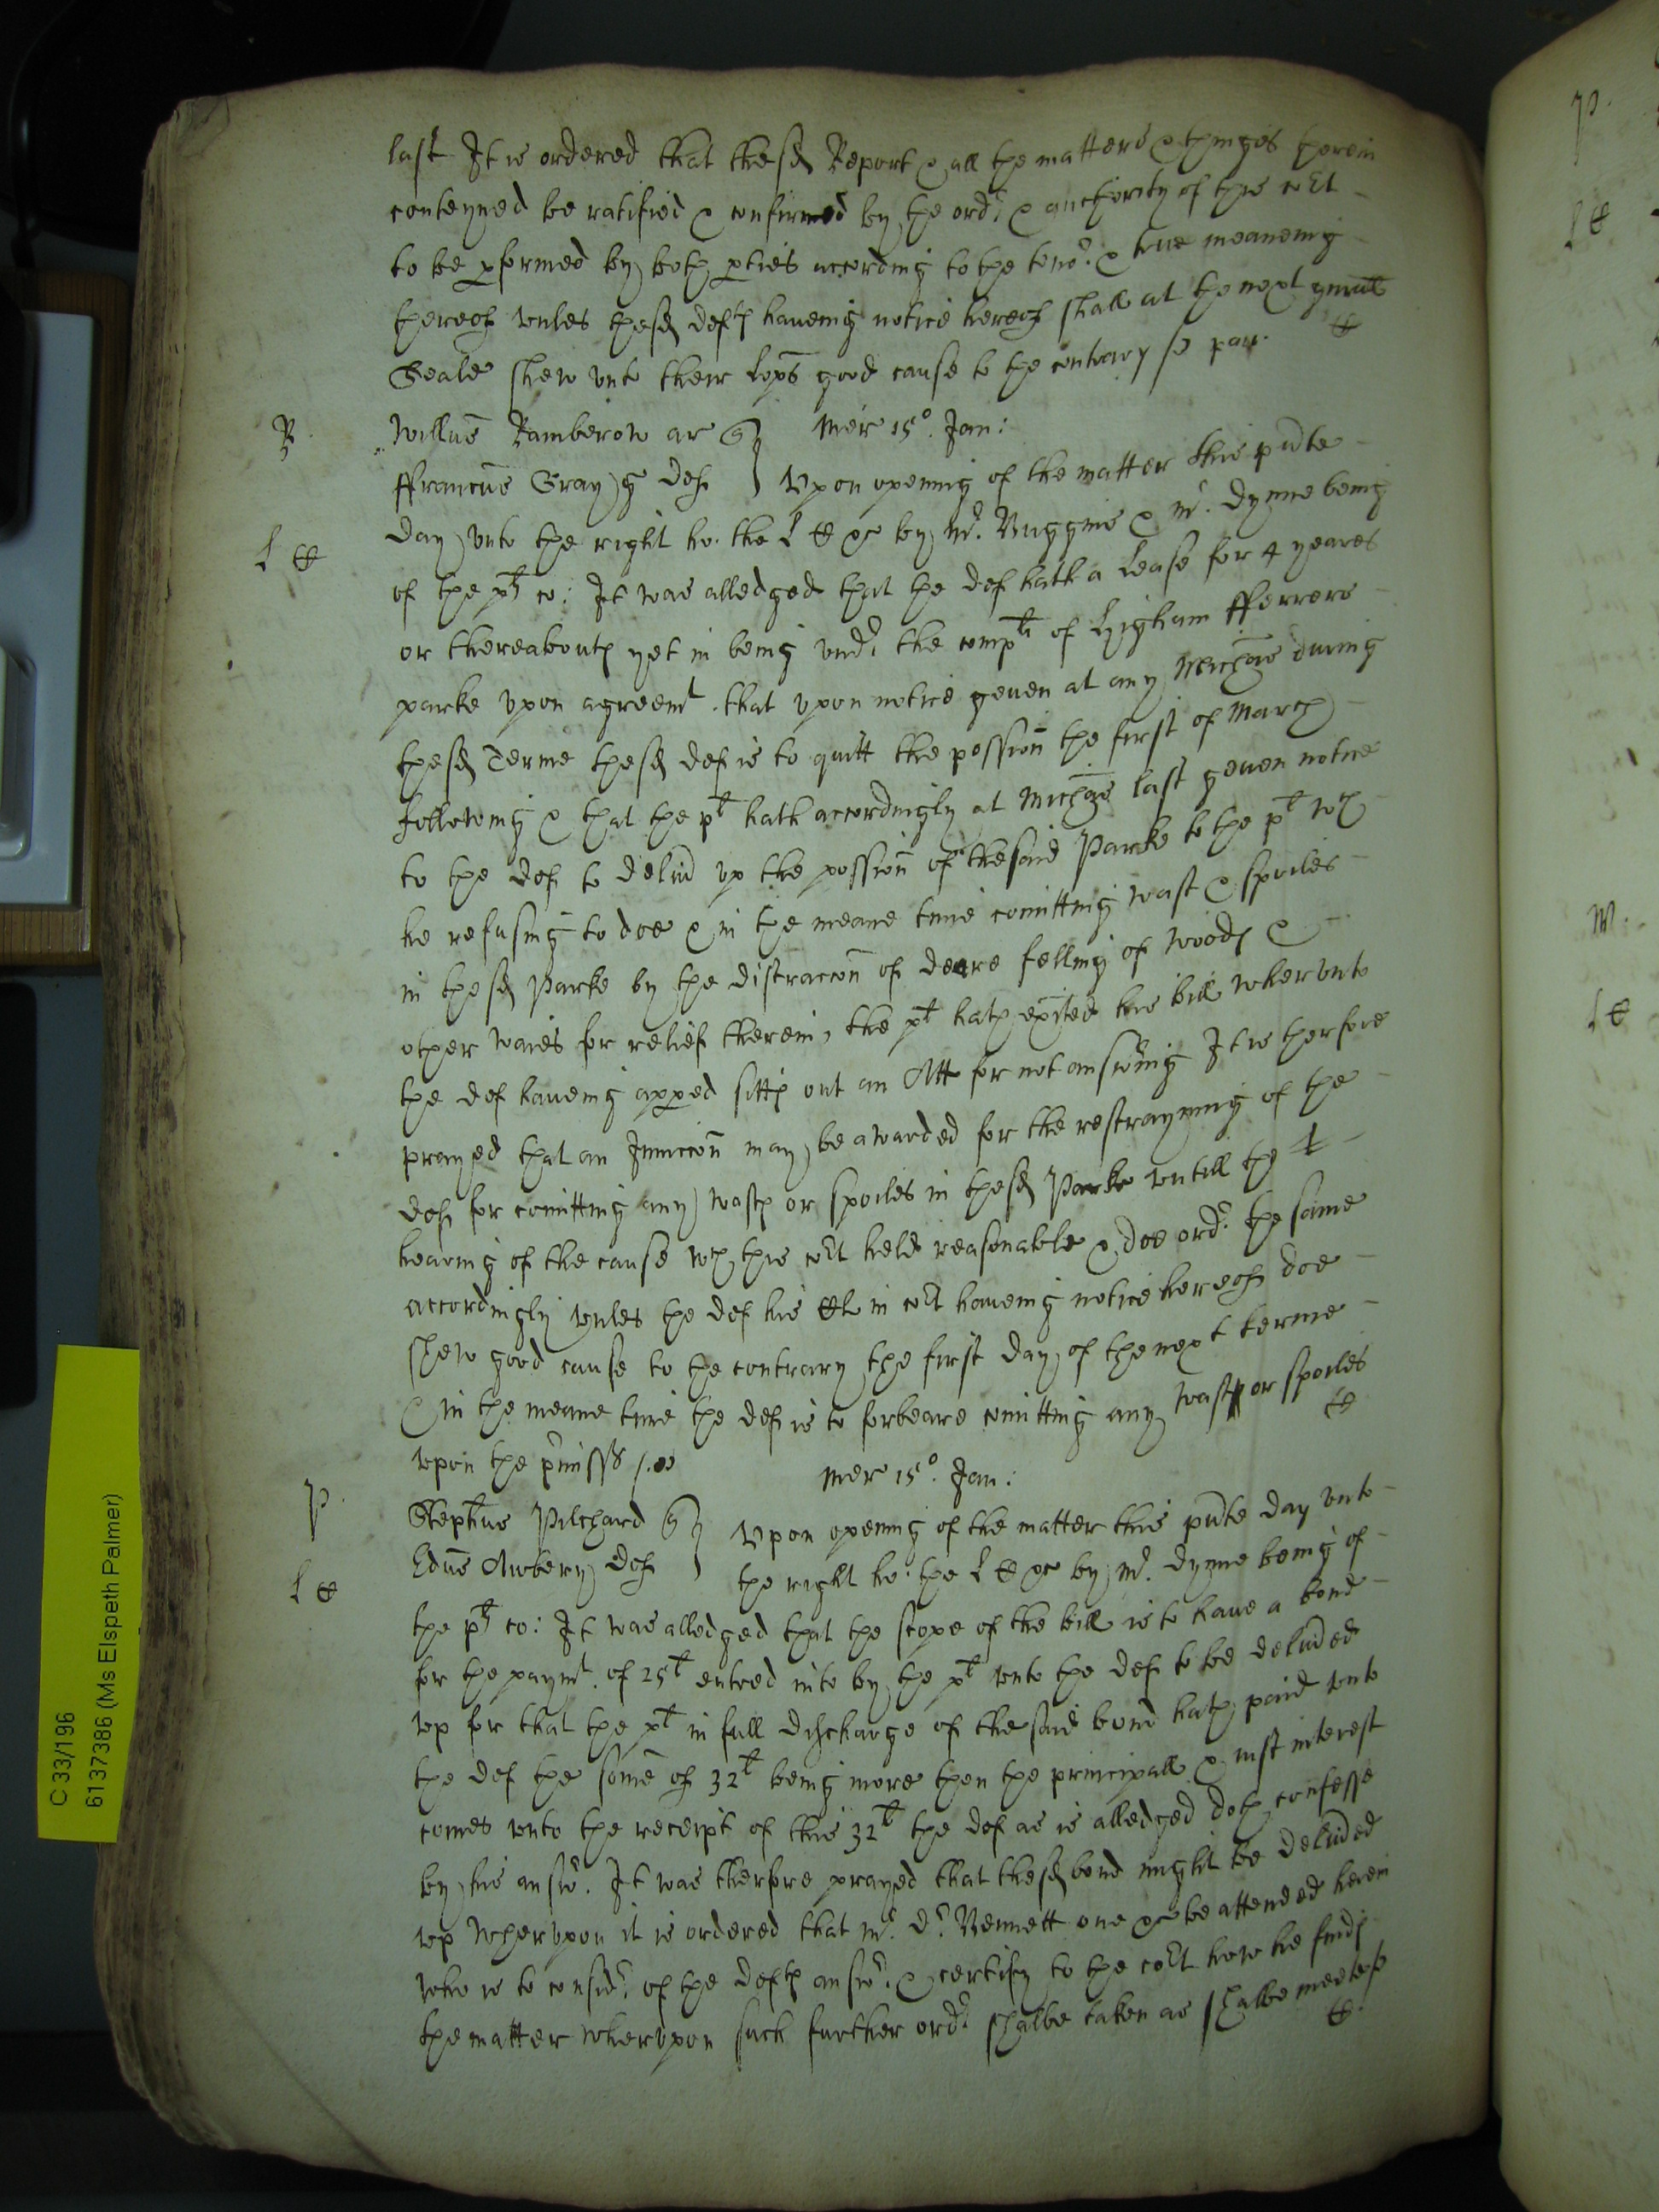 last It is ordered that the sd Report & all the matters & things therein
conteyned be ratified & confirmed by the ordr & aucthority of this cort
to be pformed by both pties according to the tenor & true meaneing
thereof vnles the sd deft haueing notice hereof shall at the next gnrall
Seale shew vnto their Lopps good cause to the contrary
R
Willus Bamberow ar Q Mer 15o. Jan:
ffrancus Gray g Def Vpon opening of the matter this pnte
day vnto the right ho: the L & by Mr. Nuggins & Mr. Dynne being
L
of the plt co: It was alledged that the def hath a Lease for 4 yeares
or thereabouts yet in being vndr the complt of Higham fferrers
parke vpon agreemt that vpon notice geuen at any Michas during
the sd Terme the sd def is to quitt the possion the first of March
following & that the plt hath accordingly at Michas last geuen notice
to the def to deliu vp the possion of the said Parke to the plt wch
he refusing to doe & in the meane time comitting wast & spoiles
in the sd Parke by the distraccon of deere felling of woods &
other waies for relief therein, the plt hath exited his bill whervnto
the def haueing appped sitts out an Att for not answring It is therfore
prayed that an Iniuccon may be awarded for the restrayning of the
def for comitting any wasts or spoiles in the sd Parke vntill the
hearing of the cause wch this cort held reasonable & doe ordr the same
accordingly vnles the def his in cort haueing notice hereof doe
shew good cause to the contrary the first day of the next terme
& in the meane time the def is to forbeare comitting any wasts or spoiles
vpon the pmisss
Mer 15o. Jan:
P
Stephus Pilchard Q Vpon opening of the matter this pnte day vnto
Edus Awbery Def the right ho: the L & by Mr. Dynne being of
L
the plt co: It was alledged that the scope of the bill is to haue a bond
for the paymt of 25l entred into by the plt vnto the def to be deliued
vp for that the plt in full discharge of the said bond hath paid vnto
the def the some of 32l being more then the principall & iust interest
comes vnto the receipt of this 32l the def as is alledged doth confesse
by his answr. It was therfore prayed that the sd bond might be deliued
vp Whervpon it is ordered that Mr. Dr. Bennett one & be attended herein
who is to consider of the defts answr & certify to the cort how he finds
the matter whervpon such further ordr shalbe taken as shalbe meete
C 33/196
6137386 (Ms Elspeth Palmer)
P.
W: